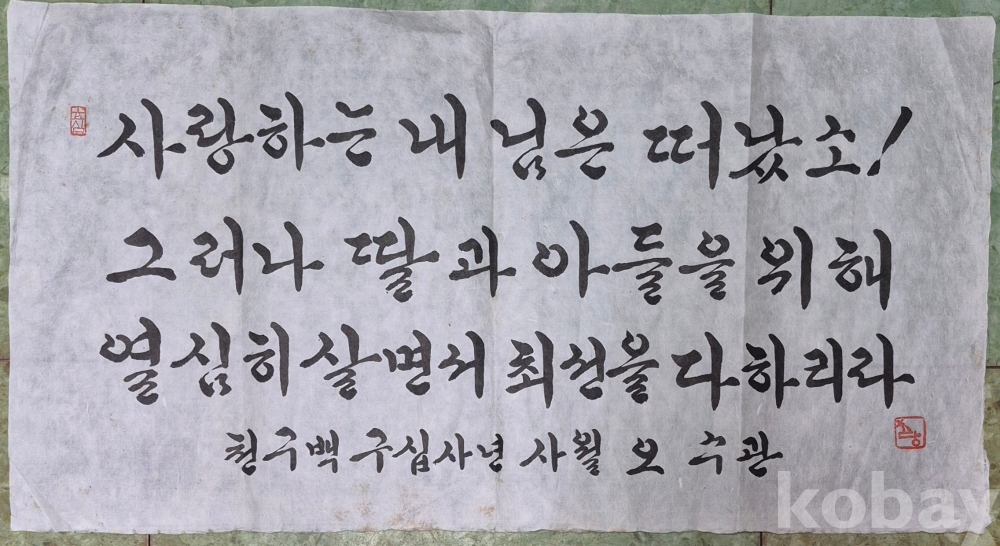 사랑하는 내 님은 떠났소!
그러나 딸과 아들을 위해
열심히 살면서 최선을 다하리라
천구백 구십사년 사월 오 수관
kobay